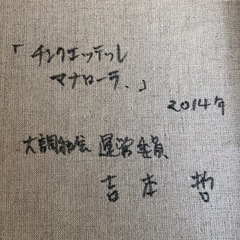 「チンクエッテッレ
マナローラ.」
2014年
大調和会 運営委員
吉本 哲